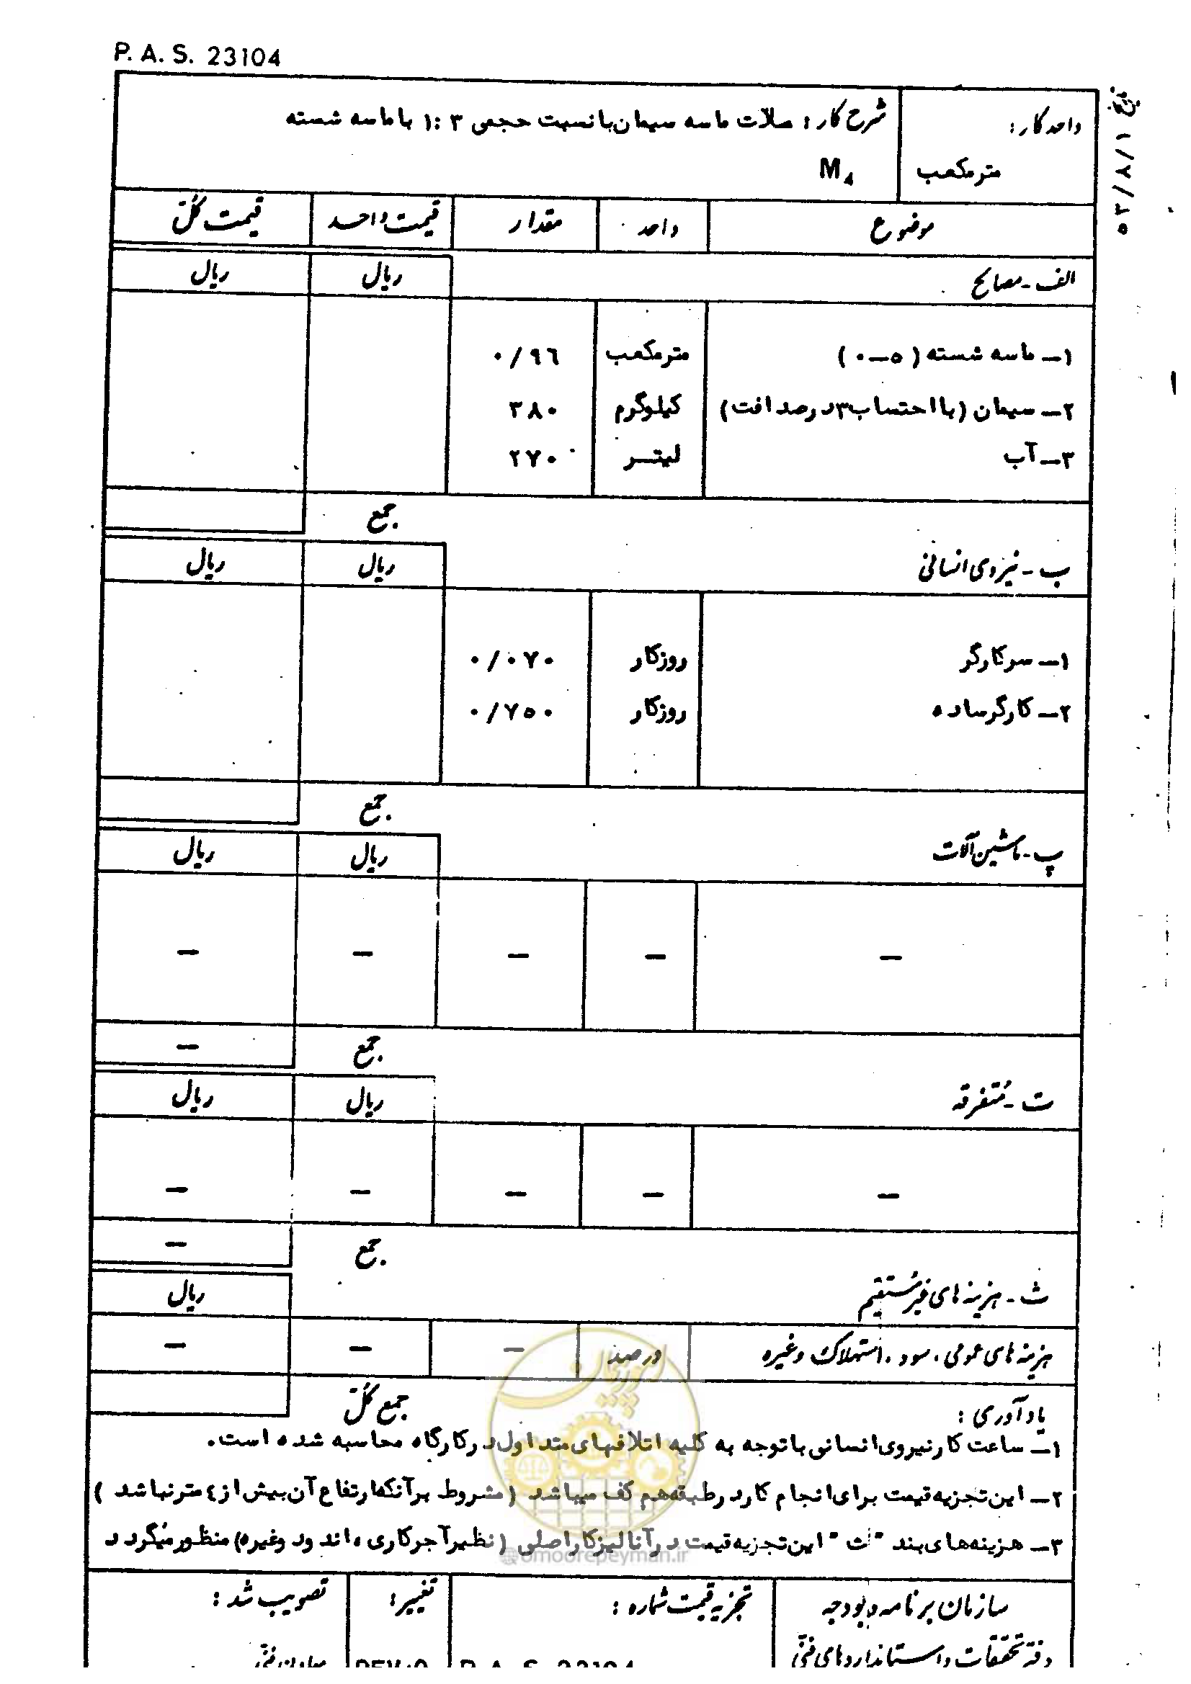 P. A. S. 23104
واحد کار :
شرح کار : ملات ماسه سیمان با نسبت حجمی ۳ :۱ با ماسه شسته
مترمکعب
M₄
موضوع واحد مقدار قیمت واحد قیمت کل
الف - مصالح ریال ریال
۱- ماسه شسته ( ۵-۰ ) مترمکعب ۰/۹۶
۲- سیمان (با احتساب ۳درصد افت) کیلوگرم ۳۸۰
۳- آب لیتر ۲۷۰
جمع
ب - نیروی انسانی ریال ریال
۱- سرکارگر روزکار ۰/۰۷۰
۲- کارگر ساده روزکار ۰/۷۵۰
جمع
پ - ماشین آلات ریال ریال
— — — — —
جمع —
ت - متفرقه ریال ریال
— — — — —
جمع —
ث - هزینه های غیرمستقیم ریال
هزینه های عمومی ، سود ، استهلاک وغیره درصد — — —
یادآوری : جمع کل
۱- ساعت کار نیروی انسانی با توجه به کلیه اتلافهای متداول در کارگاه محاسبه شده است.
۲- این تجزیه قیمت برای انجام کار در طبقه هم کف میباشد (مشروط بر آنکه ارتفاع آن بیش از ٤ متر نباشد )
۳- هزینه های بند " ث " این تجزیه قیمت در آنالیز کار اصلی ( نظیر آجرکاری ، اندود وغیره) منظور میگردد
امور پیمان
@omoorepeyman.ir
سازمان برنامه و بودجه تجزیه قیمت شماره : تغییر: تصویب شد :
دفتر تحقیقات و استانداردهای فنی P. A. S. 23104 REV:0 معاون فنی